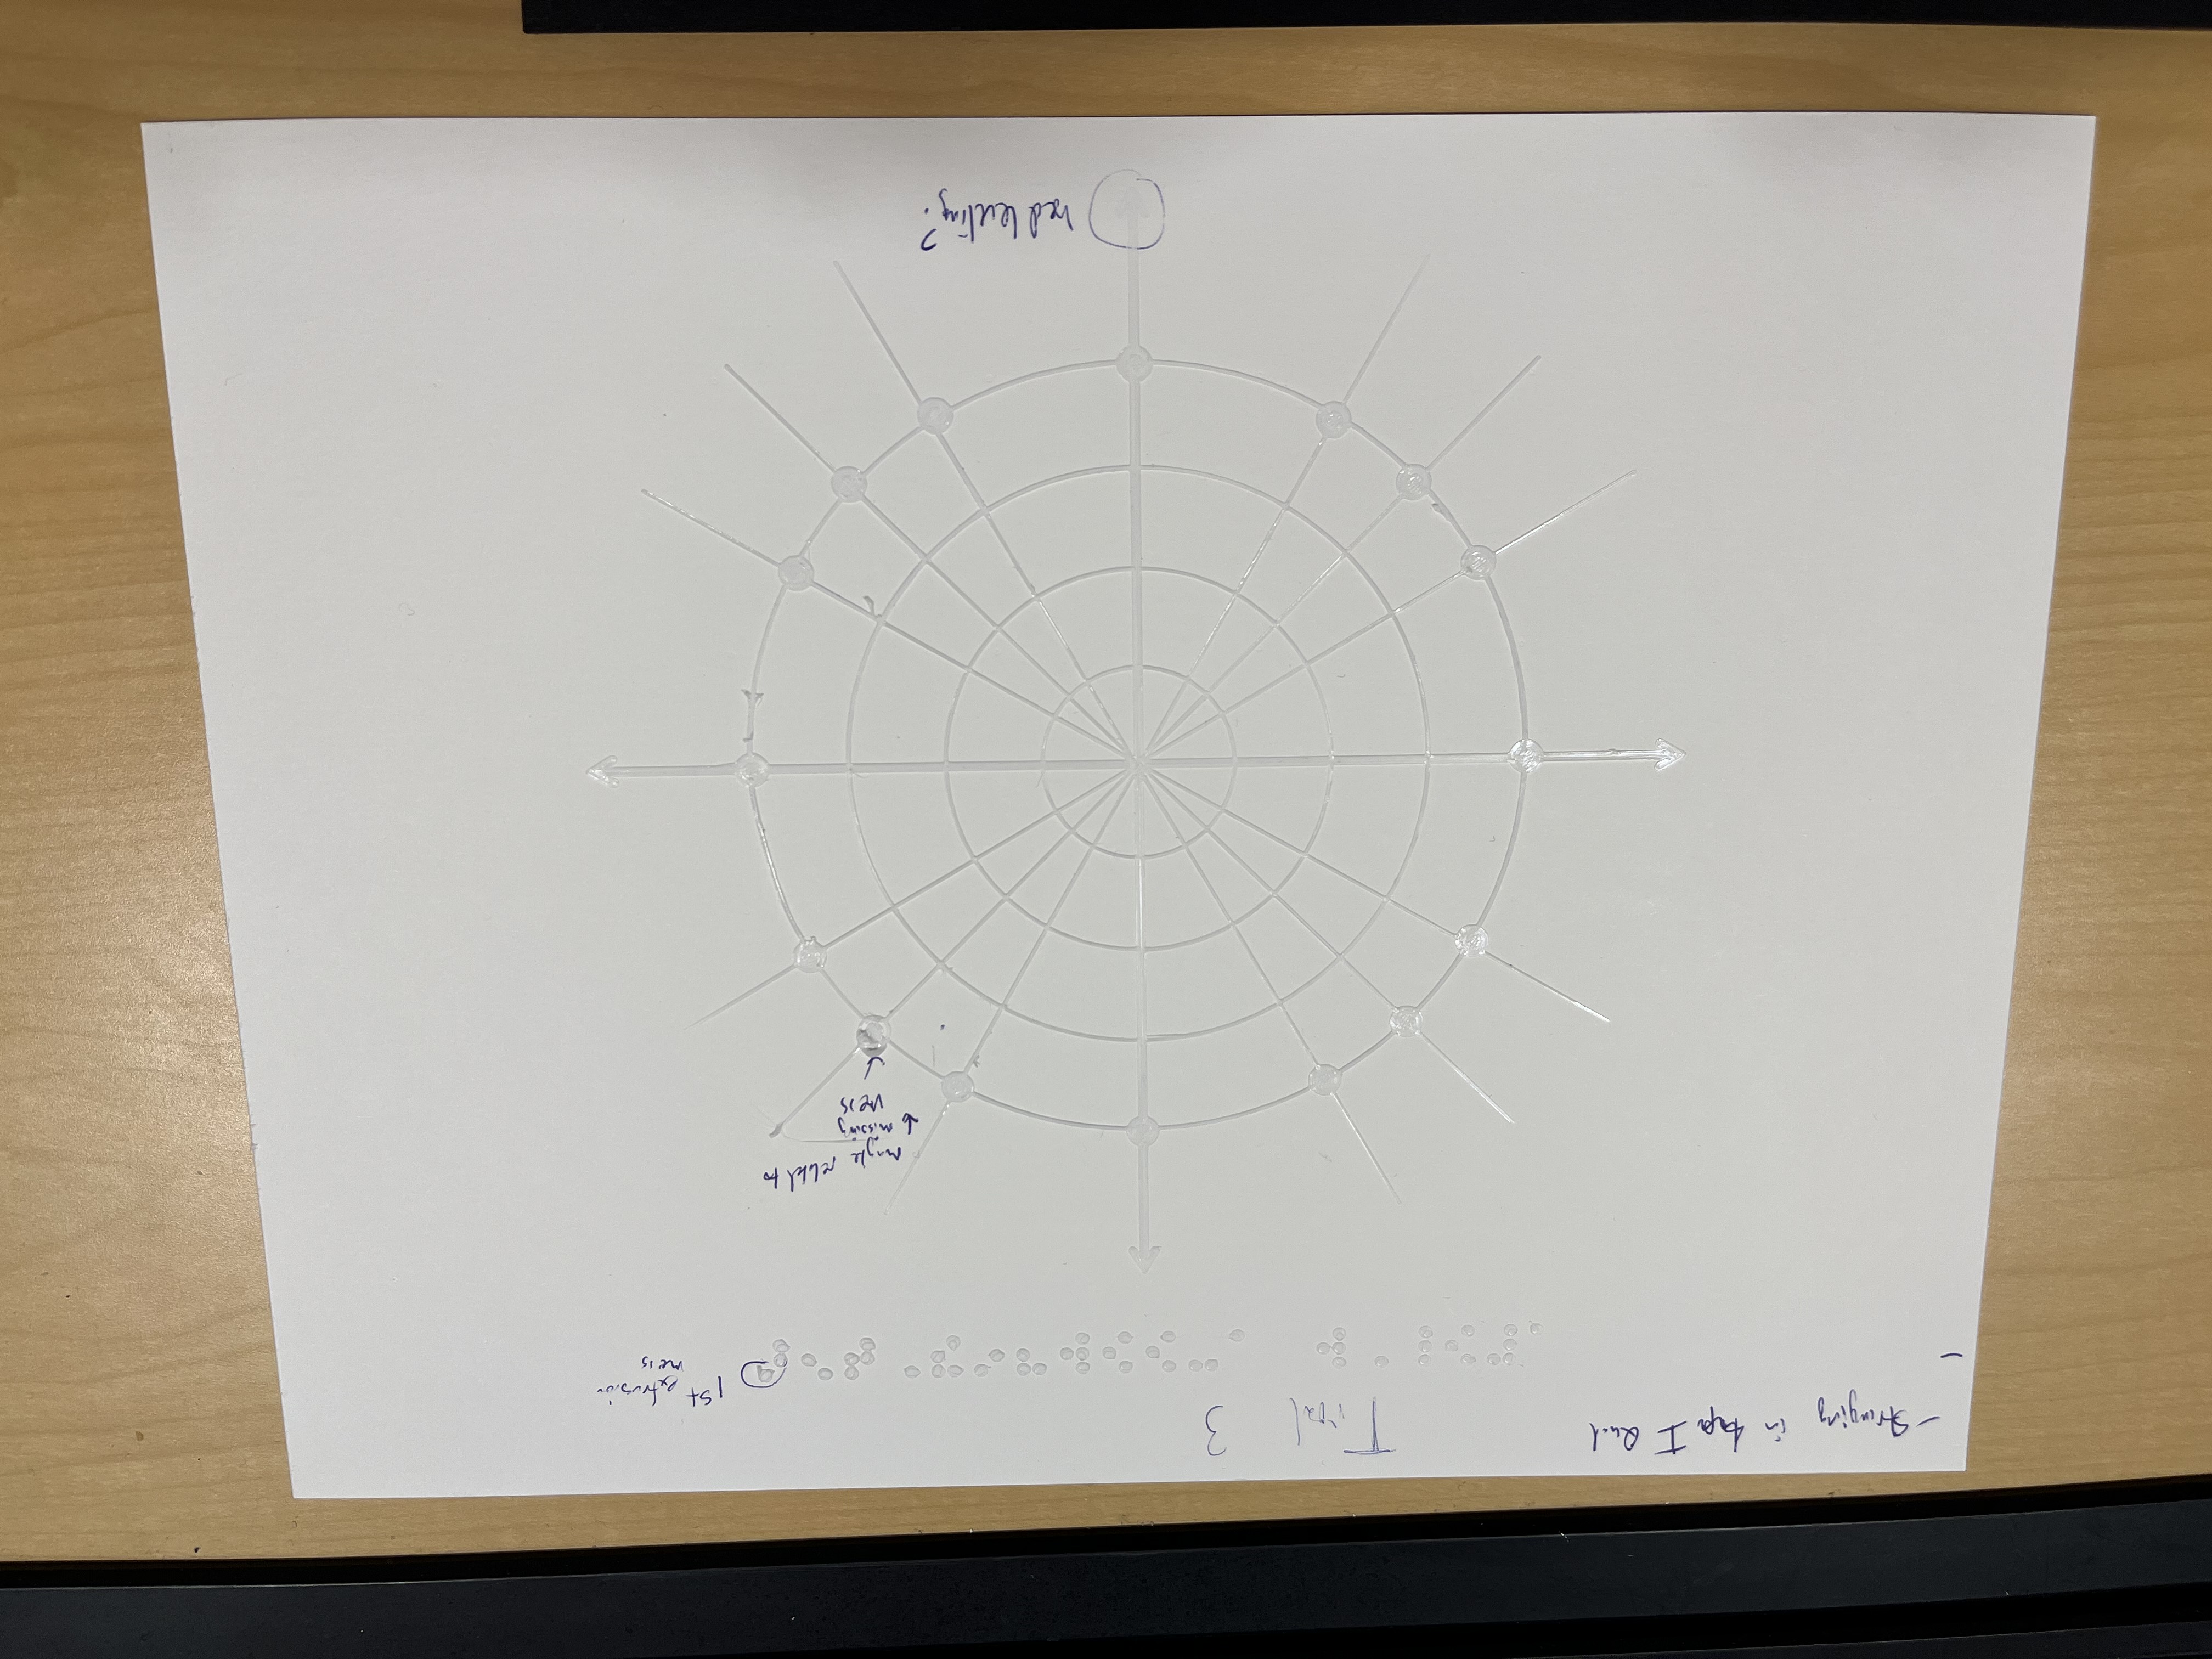 - Stringing in I Quad
Trial 3
1st extrusion
mess
maybe related to
↓ missing
mess
bed leveling?